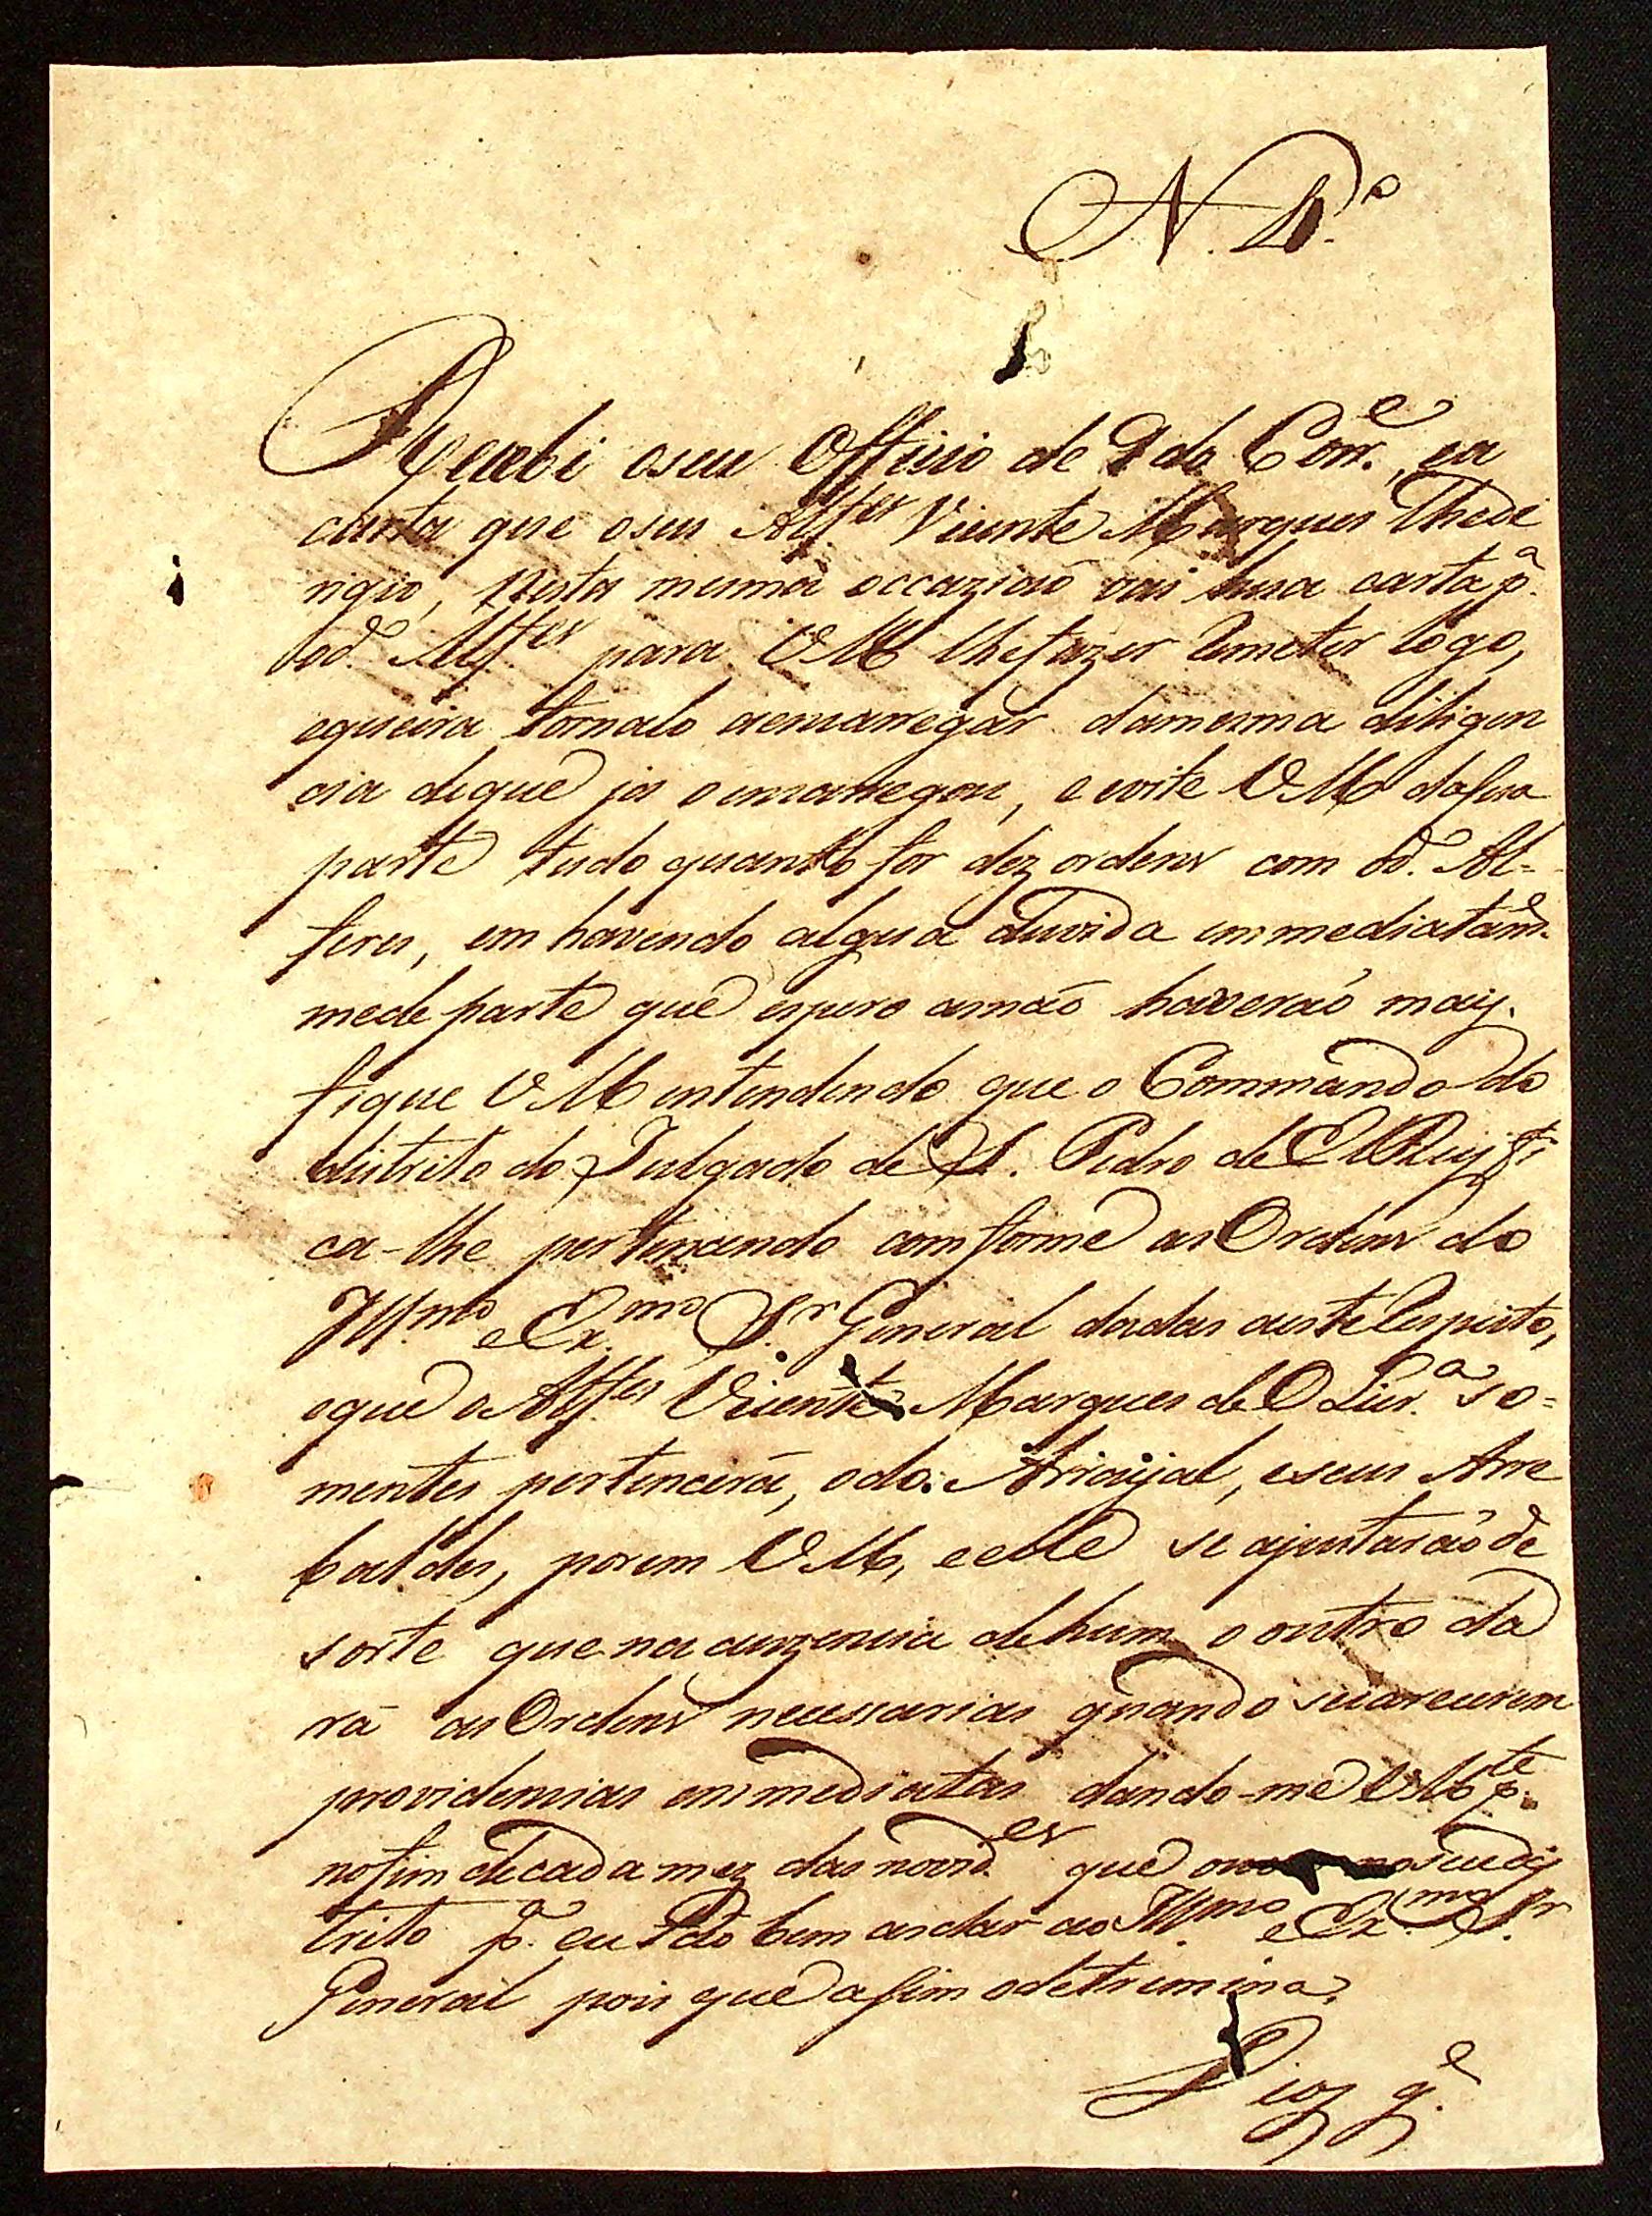 N. 4.º
Recebi o seu Officio de 9 do Corr.e, e a
carta que o seu Alf.es Vicente Marques lhe de
rigio, nesta mesma occaziaõ vai huma carta p.a
o d.o Alf.es para VM lhe fazer Remeter logo,
e queira tornalo a encarregar da mesma diligen
cia de que ja o encarregou, e evite VM da sua
parte tudo quanto for dezordens com o d.o Al=
feres, em havendo algua duvida emmediatam.e
me de parte que espero a não haverão mais.
fique VM entendendo que o Commando do
distrito do Julgado de S. Pedro de ElRey fi
ca-lhe pertencendo comforme as Ordens do
Ill.mo e Ex.mo S.r General dadas a este Respeito,
e que o Alf.es Vicente Marques de OLiv.a so=
mentes pertencerá, o do Arraijal, e seus Arre
baldes, porem VM, e elle se ajustaraõ de
sorte que na auzencia de hum o outro da
rá as Ordens necessarias quando se carecerem
providencias emmediatas dando-me VM p.te
no fim de cada mez das novid.es que no seu dis
trito p.a eu tãobem as dar ao Ill.mo e Ex.mo S.r
General pois que asim o detremina.
Deos g.e